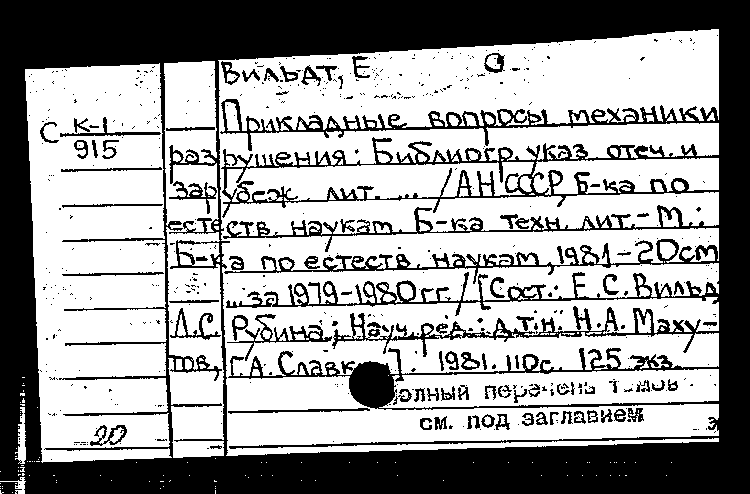 Вильдт, Е О
С К-1
915
Прикладные вопросы механики
разрушения: Библиогр. указ отеч. и
зарубеж лит. ... / АН СССР, Б-ка по
естеств. наукам. Б-ка техн. лит. - М.:
Б-ка по естеств. наукам, 1981 - 20см
... за 1979-1980 гг. / [Сост.: Е.С. Вильд
Л.С. Рубина; Науч. ред.: д.т.н. Н.А. Маху-
тов, Г.А. ]. 1981. 110с. 125 экз.
полный перечень томов
см. под заглавием
20 э